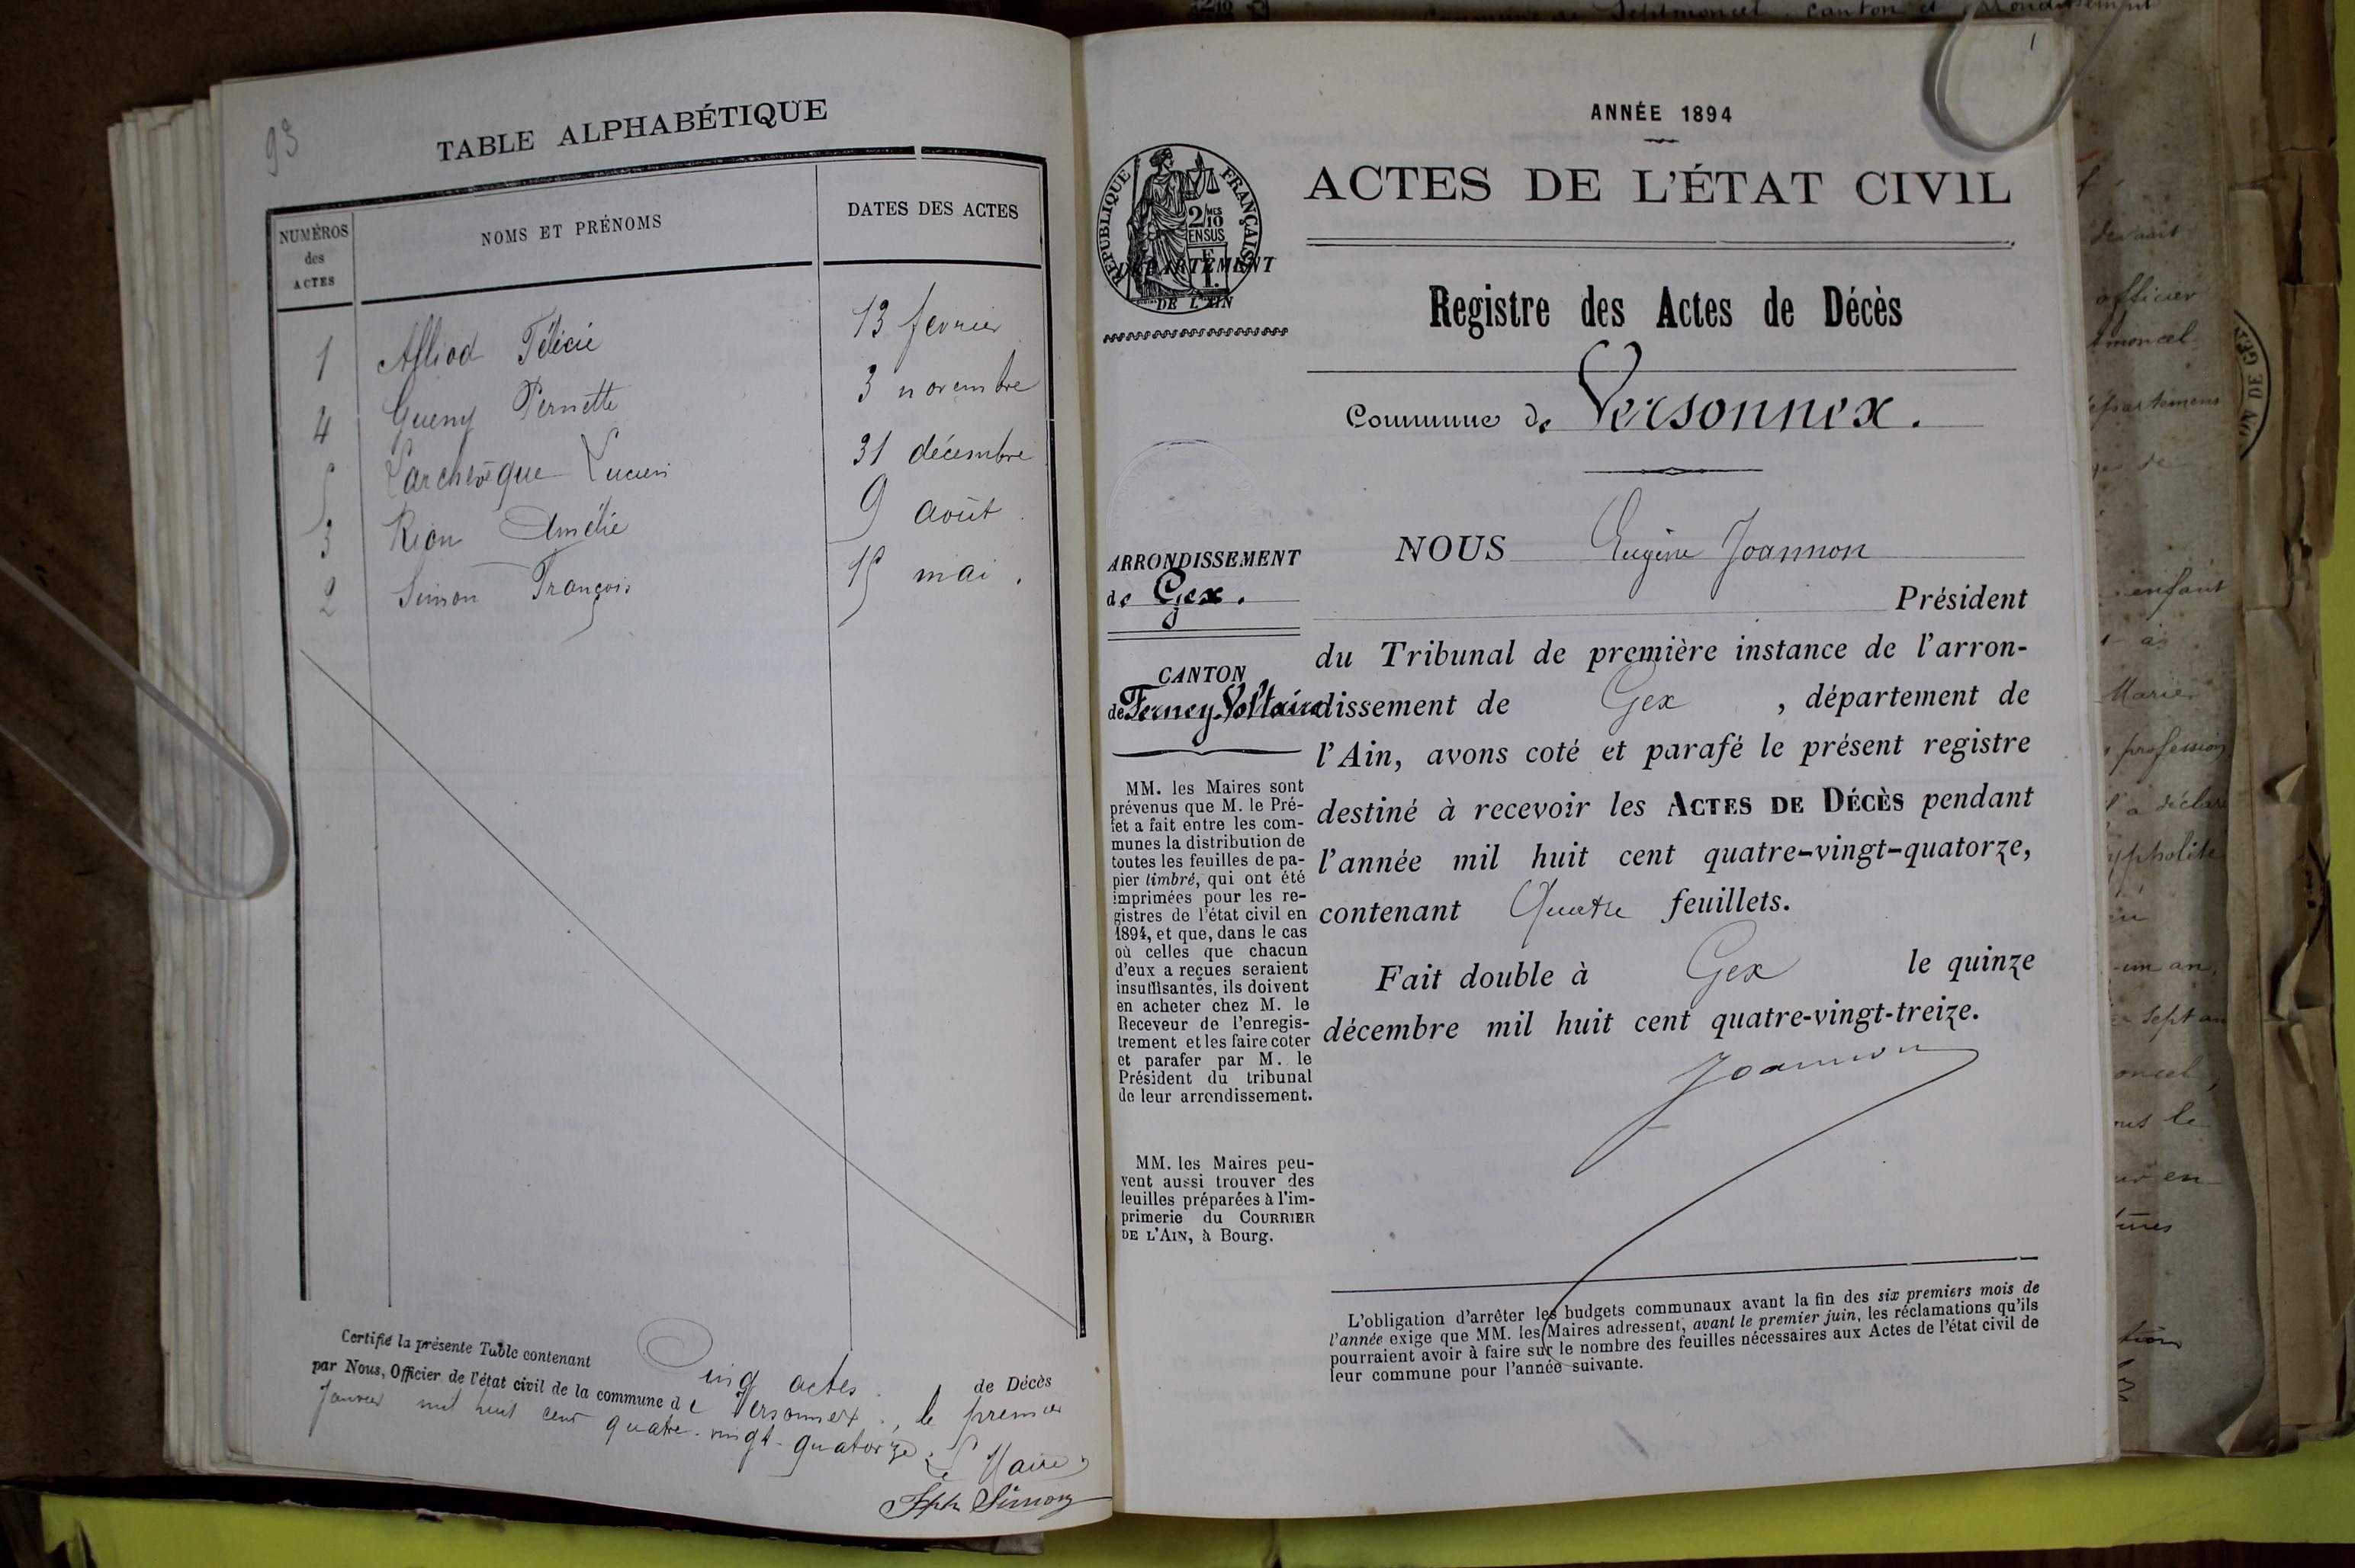 93
TABLE ALPHABÉTIQUE
NUMÉROS des ACTES NOMS ET PRÉNOMS DATES DES ACTES
1 Alliod Félicie 13 février
4 Gueny Pernette 3 novembre
5 Larchevêque Lucien 31 décembre
3 Rion Amélie 9 août
2 Simon François 15 mai.
Certifié la présente Table contenant Cinq actes. de Décès
par Nous, Officier de l'état civil de la commune de Versonnex, le premier
Janvier mil huit cent quatre-vingt-quatorze.
Le Maire,
Jph Simon
1
ANNÉE 1894
RÉPUBLIQUE FRANÇAISE
2/10 MES
EN SUS
DÉPARTEMENT
DE L'AIN
ACTES DE L'ÉTAT CIVIL
Registre des Actes de Décès
Commune de Versonnex.
ARRONDISSEMENT
de Gex.
CANTON
de Ferney-Voltaire
MM. les Maires sont
prévenus que M. le Pré-
fet a fait entre les com-
munes la distribution de
toutes les feuilles de pa-
pier timbré, qui ont été
imprimées pour les re-
gistres de l'état civil en
1894, et que, dans le cas
où celles que chacun
d'eux a reçues seraient
insuffisantes, ils doivent
en acheter chez M. le
Receveur de l'enregis-
trement et les faire coter
et parafer par M. le
Président du tribunal
de leur arrondissement.
MM. les Maires peu-
vent aussi trouver des
feuilles préparées à l'im-
primerie du COURRIER
DE L'AIN, à Bourg.
NOUS Eugène Joannon
Président
du Tribunal de première instance de l'arron-
dissement de Gex, département de
l'Ain, avons coté et parafé le présent registre
destiné à recevoir les ACTES DE DÉCÈS pendant
l'année mil huit cent quatre-vingt-quatorze,
contenant Quatre feuillets.
Fait double à Gex le quinze
décembre mil huit cent quatre-vingt-treize.
Joannon
L'obligation d'arrêter les budgets communaux avant la fin des six premiers mois de
l'année exige que MM. les Maires adressent, avant le premier juin, les réclamations qu'ils
pourraient avoir à faire sur le nombre des feuilles nécessaires aux Actes de l'état civil de
leur commune pour l'année suivante.
commune de Septmoncel, canton et arrondissement
devant
officier
enfant
profession
un an,
sept an